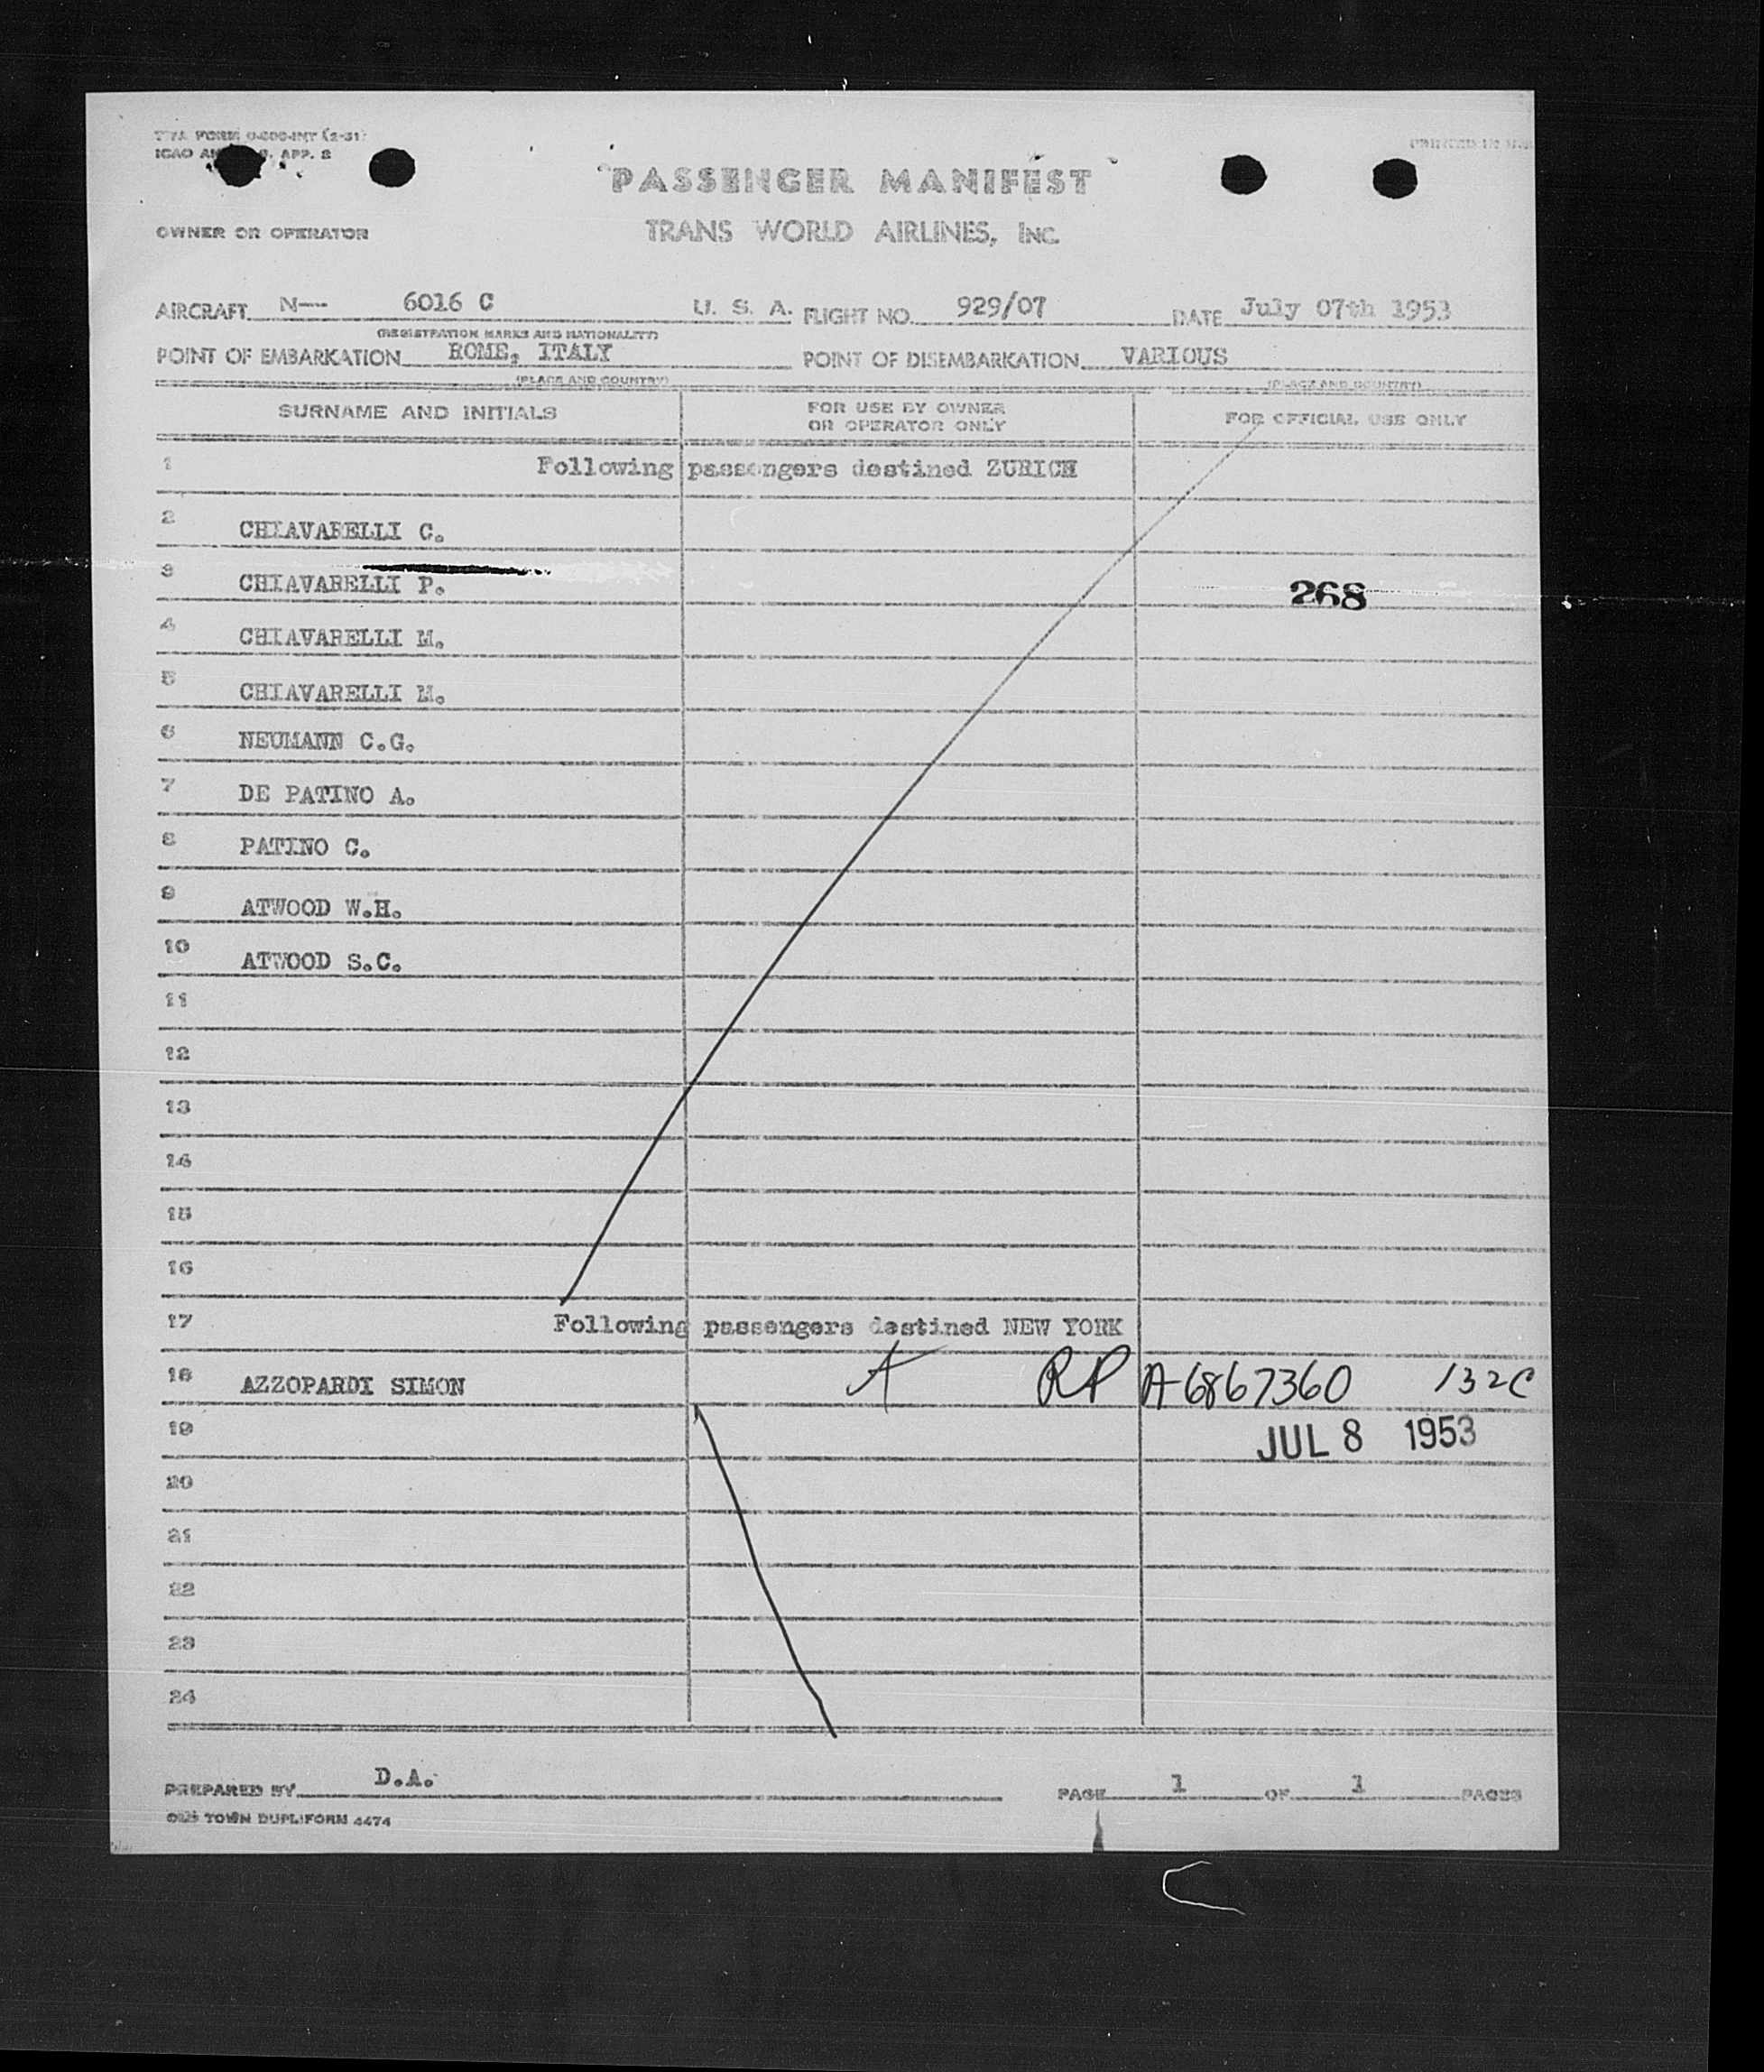 TWA FORM O-800-INT (2-51)
ICAO AN 9, APP. 2
PASSENGER MANIFEST
OWNER OR OPERATOR TRANS WORLD AIRLINES, INC.
AIRCRAFT N— 6016 C U. S. A. FLIGHT NO. 929/07 DATE July 07th 1953
(REGISTRATION MARKS AND NATIONALITY)
POINT OF EMBARKATION ROME, ITALY POINT OF DISEMBARKATION VARIOUS
(PLACE AND COUNTRY) (PLACE AND COUNTRY)
SURNAME AND INITIALS FOR USE BY OWNER OR OPERATOR ONLY FOR OFFICIAL USE ONLY
1 Following passengers destined ZURICH
2 CHIAVARELLI C.
3 CHIAVARELLI P. 268
4 CHIAVARELLI M.
5 CHIAVARELLI M.
6 NEUMANN C.G.
7 DE PATINO A.
8 PATINO C.
9 ATWOOD W.H.
10 ATWOOD S.C.
11
12
13
14
15
16
17 Following passengers destined NEW YORK
18 AZZOPARDI SIMON A RP A-6867360 132C
19 JUL 8 1953
20
21
22
23
24
PREPARED BY D.A. PAGE 1 OF 1 PAGES
OLD TOWN DUPLIFORM 4474